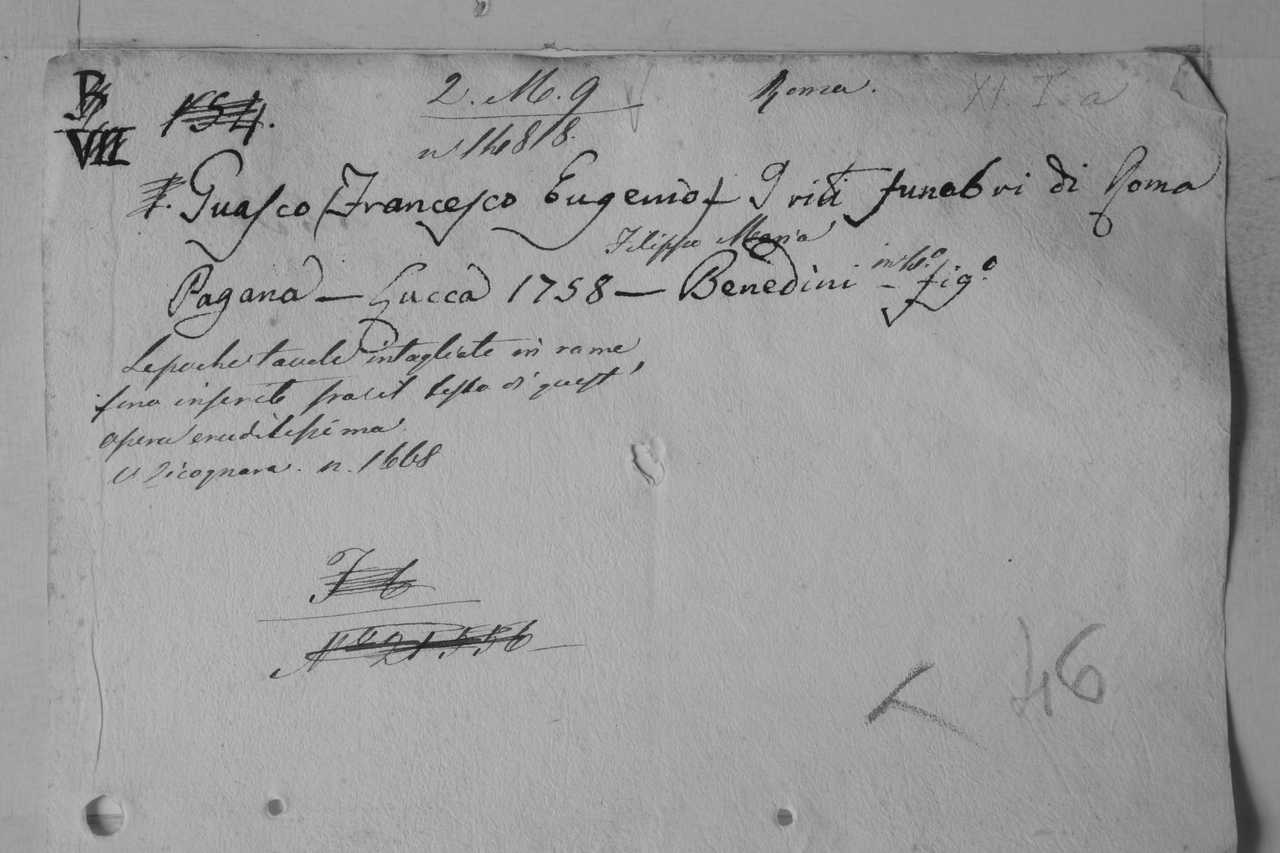 B
VII
154.
2. M. 9
n. 14818.
Roma.
XI. I. a
Guasco (Francesco Eugenio) I riti funebri di Roma
Filippo Maria
Pagana — Lucca 1758 — Benedini in 4.º fig.º
Le poche tavole intagliate in rame
sono inserite fra il testo di quest'
opera eruditissima
v. Cicognara. n. 1668
I b
N.º 21556
46